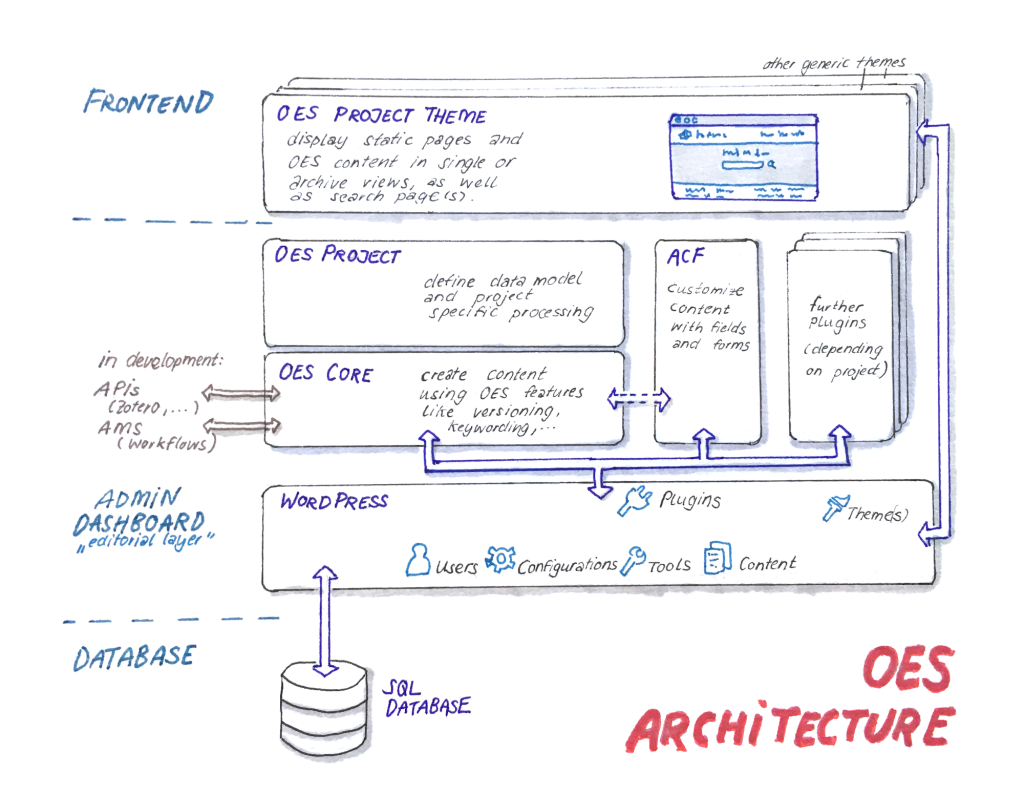 other generic themes
FRONTEND
OES PROJECT THEME
display static pages and
OES content in single or
archive views, as well
as search page(s).
OES PROJECT
define data model
and project
specific processing
ACF
customize
content
with fields
and forms
further
plugins
(depending
on project)
in development:
APis
(Zotero,...)
AMS
(workflows)
OES CORE
create content
using OES features
like versioning,
keywording,...
ADMiN
DASHBOARD
„editorial layer"
WORDPRESS
Plugins
Theme(s)
Users
Configurations
Tools
Content
DATABASE
SQL
DATABASE
OES
ARCHiTECTURE